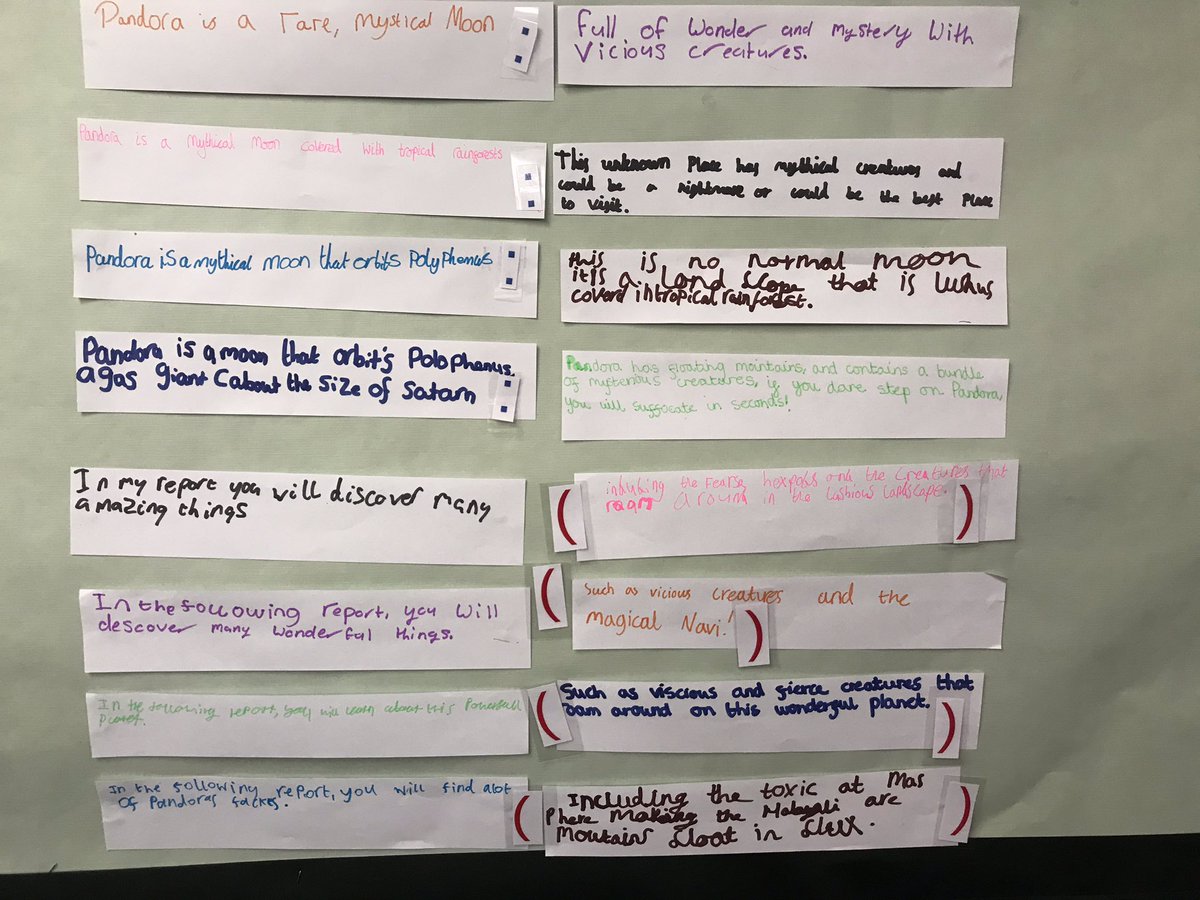 Pandora is a rare, Mystical Moon :
full of wonder and mystery With
Vicious creatures.
Pandora is a Mythical Moon covered with tropical rainforests :
This unknown Place has mythical creatures and
could be a nightmare or could be the best Place
to visit.
Pandora is a mythical moon that orbits Polyphemus :
this is no normal moon
it is a land scape that is lukus
coverd in tropical rainforest.
Pandora is a moon that orbit's Polophenus,
a gas giant Cabout the size of Satarn :
Pandora has floating mountains, and contains a bundle
of mysterious creatures, if you dare step on Pandora,
you will suffocate in seconds!
In my report you will discover many
amazing things
( the hexpods and the creatures that
roam around in the . )
In the following report, you will
descover many wonderful things.
( Such as vicious creatures and the
magical Navi! )
In the following report, you will learn about this Powerfull
Planet.
( Such as viscious and fierce creatures that
roam around on this wonderful planet. )
In the following report, you will find alot
Of Pandoras .
( Including the toxic at Mas
Phere Making the are
Moutains float in .)